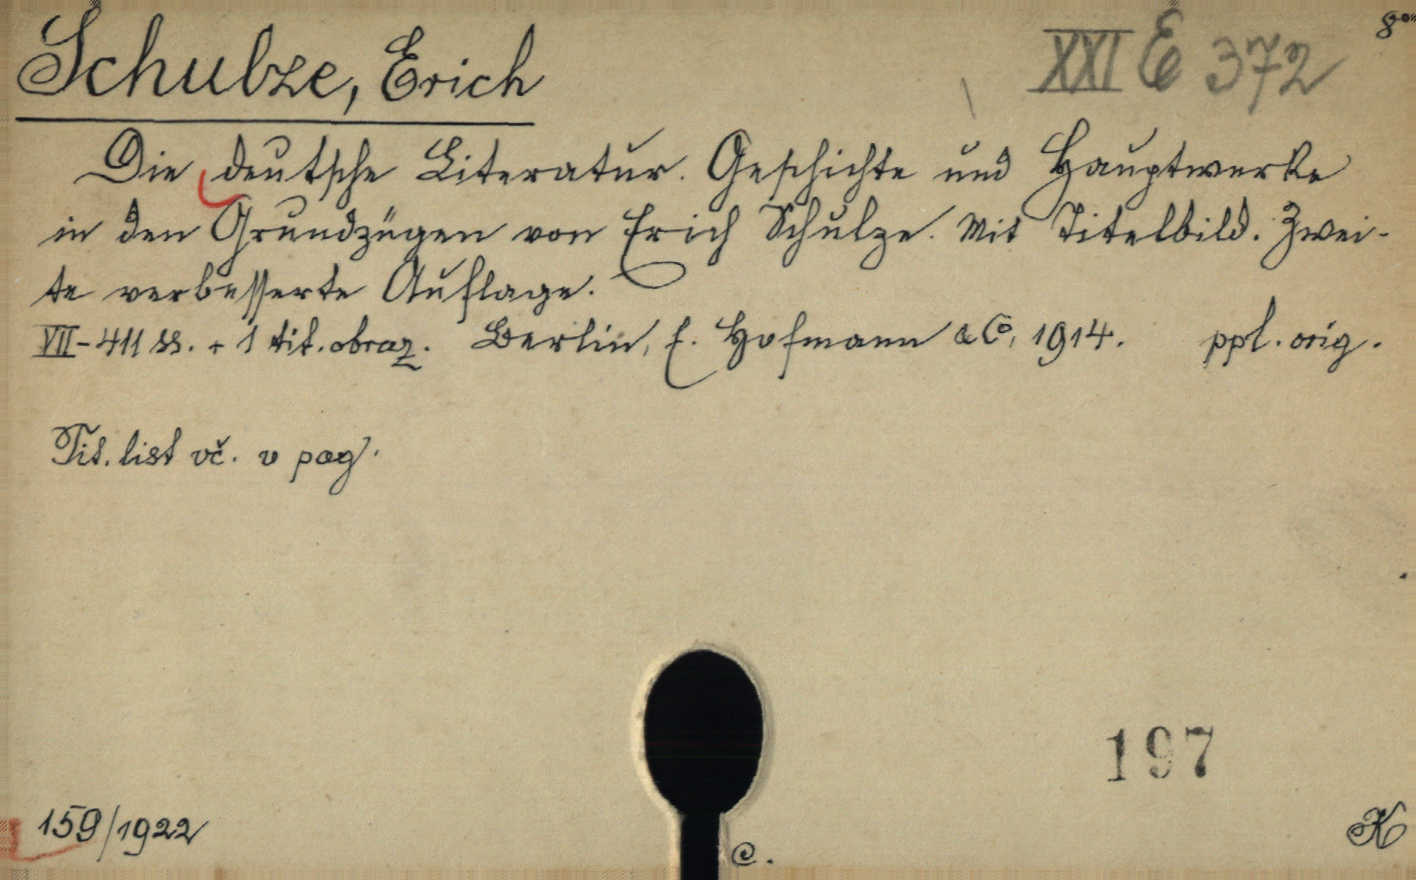 8°
XXI E 372
Schulze, Erich
Die deutsche Literatur. Geschichte und Hauptwerke
in den Grundzügen von Erich Schulze. Mit Titelbild. Zwei-
te verbesserte Auflage.
VII-411 ss. + 1 tit. obraz. Berlin, E. Hofmann & Co, 1914. ppl. orig.
Tit. list vč. v pag.
197
159/1922
e.
K